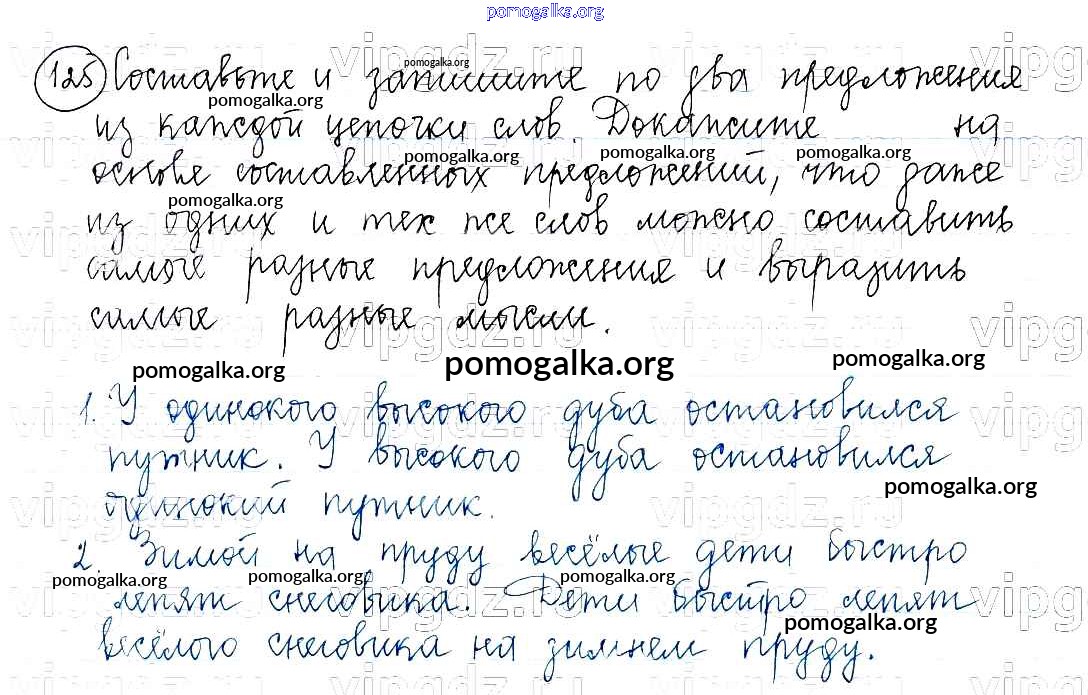 pomogalka.org
125 Составьте и запишите по два предложения
из каждой цепочки слов. Докажите на
основе составленных предложений, что даже
из одних и тех же слов можно составить
самые разные предложения и выразить
самые разные мысли.
pomogalka.org pomogalka.org pomogalka.org
1. У одинокого высокого дуба остановился
путник. У высокого дуба остановился
одинокий путник.
pomogalka.org
2. Зимой на пруду весёлые дети быстро
pomogalka.org pomogalka.org pomogalka.org
лепят снеговика. Дети быстро лепят
pomogalka.org
весёлого снеговика на зимнем пруду.